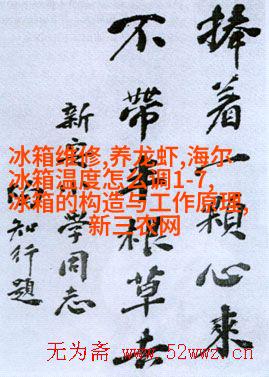 捧着一顆心來
不帶半根草去
新安小學同志
知行題
冰箱维修,养龙虾,海尔
冰箱温度怎么调1-7,
冰箱的构造与工作原理,
新三农网
无为斋 www.52wwz.cn